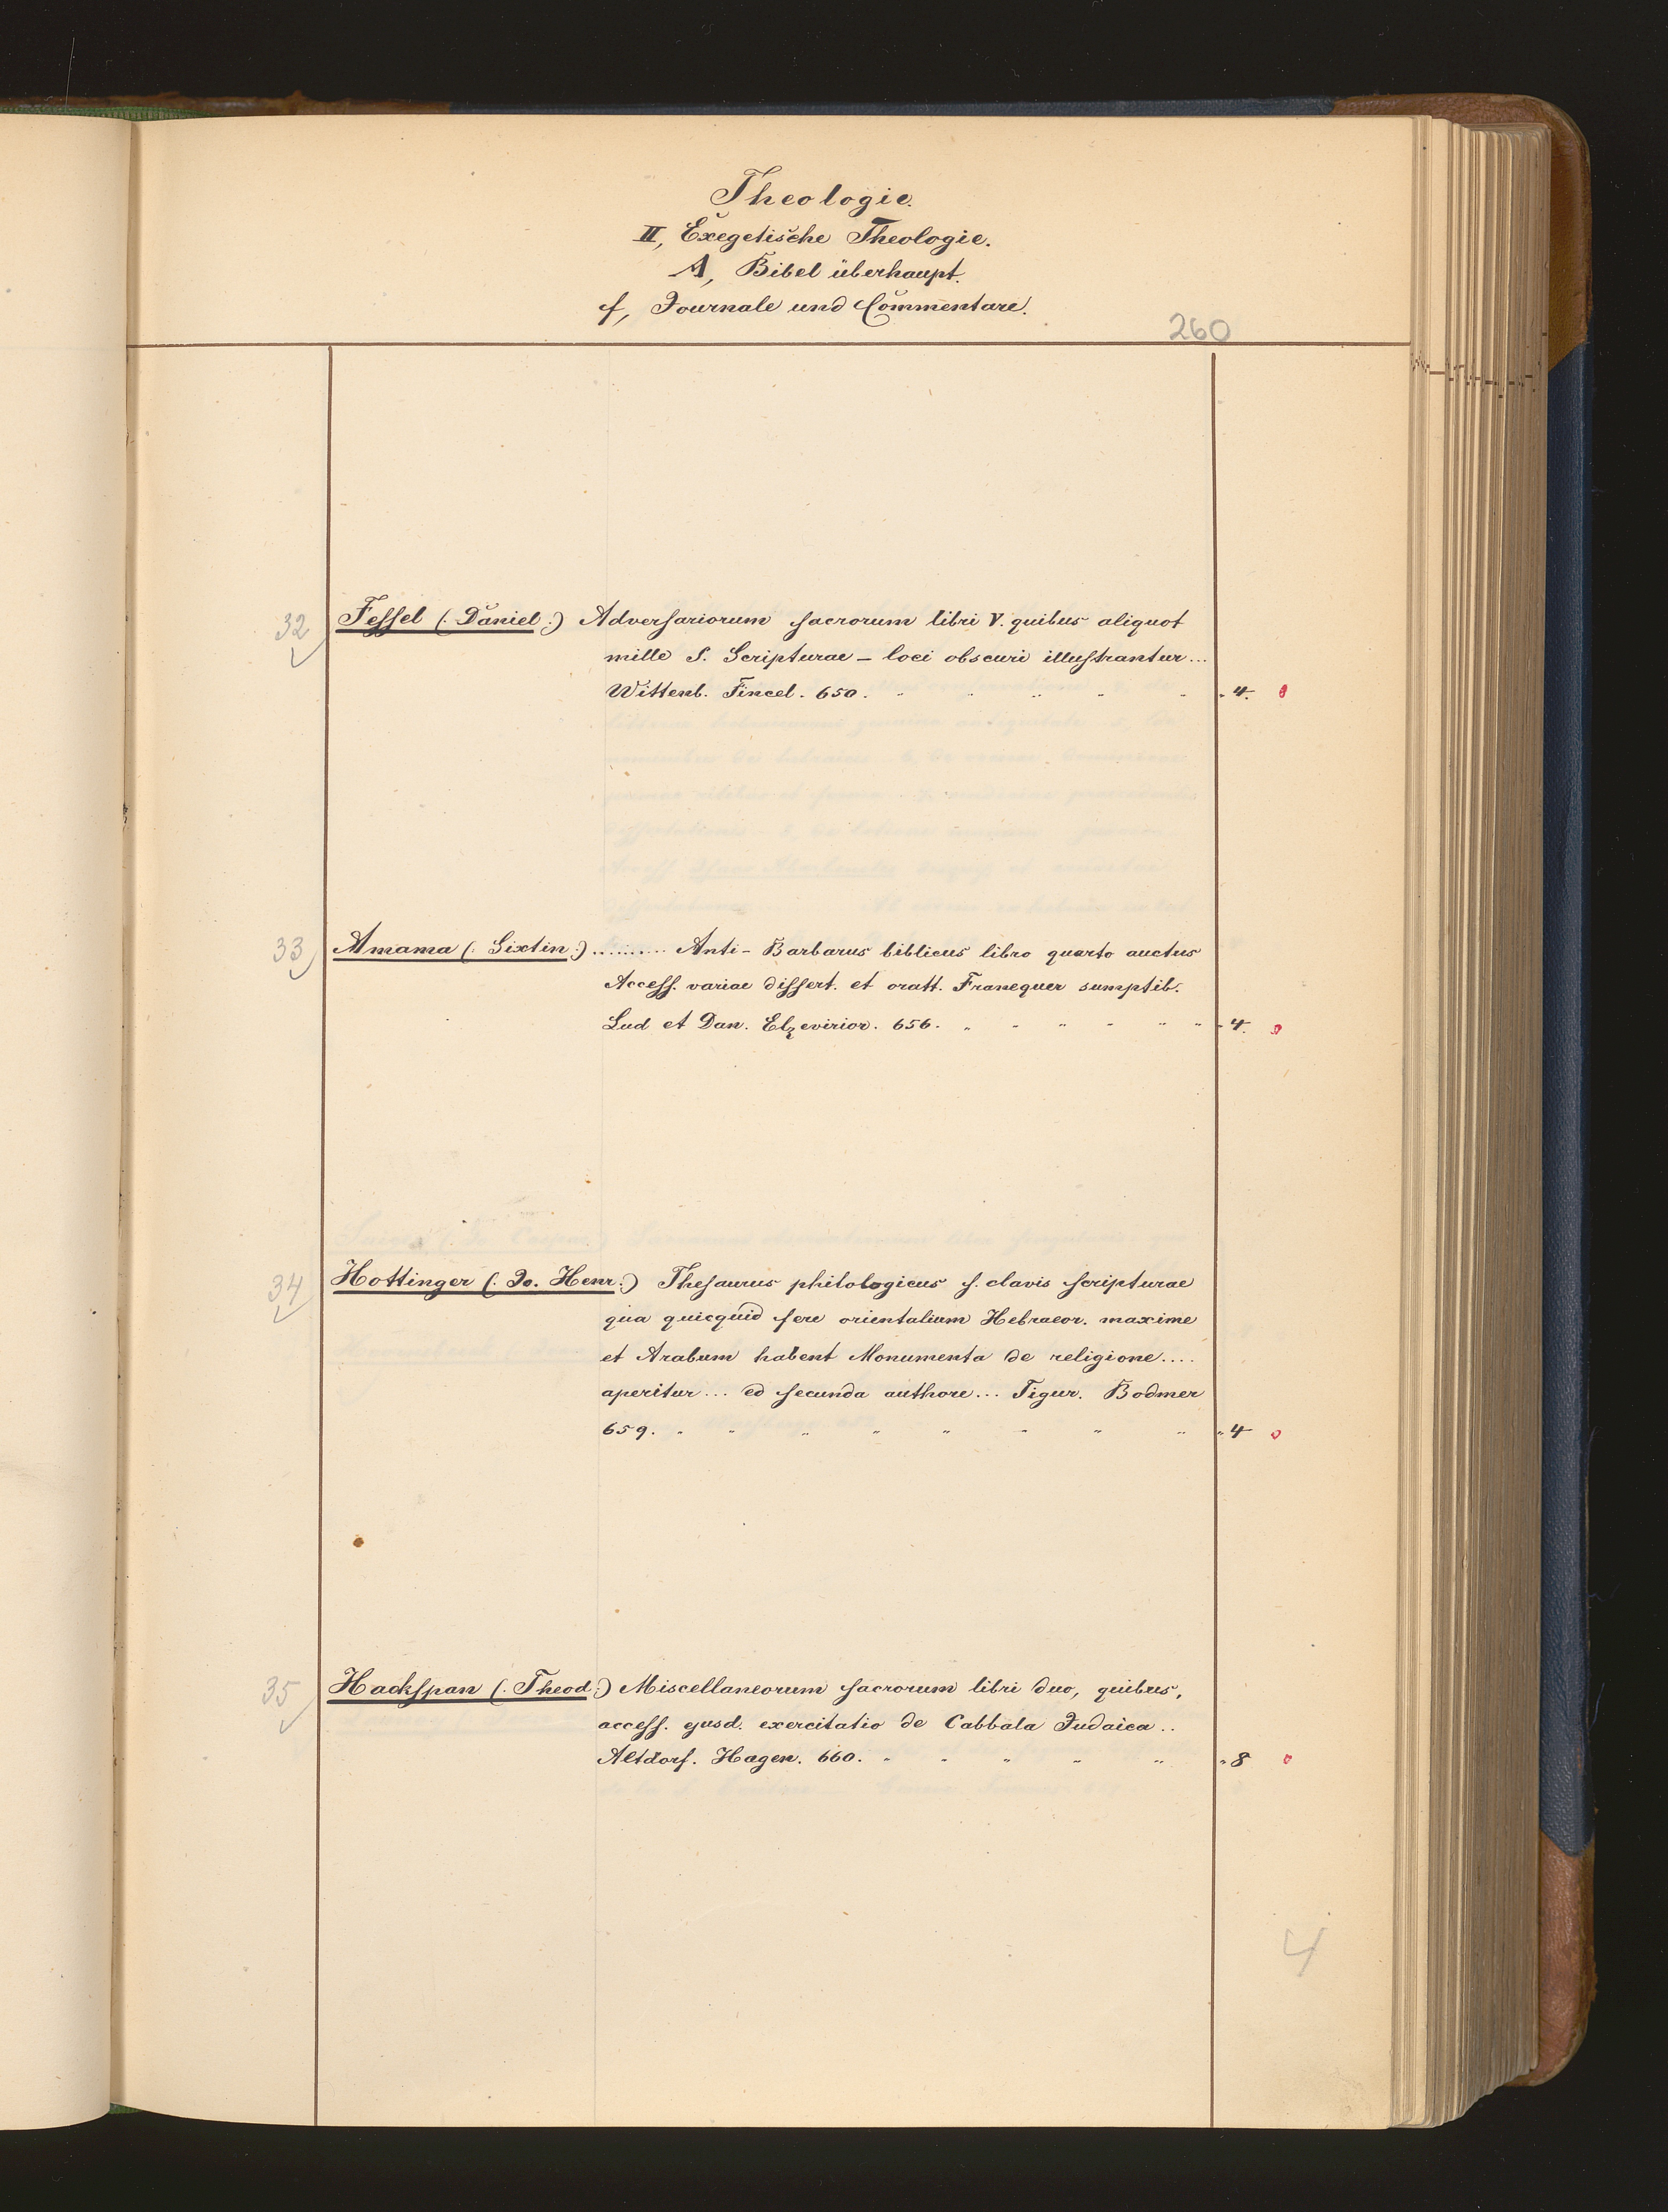 Theologie.
II, Exegetische Theologie.
A, Bibel überhaupt.
f, Journale und Commentare.
260
32 Fessel (: Daniel :) Adversariorum sacrorum libri V. quibus aliquot
mille S. Scripturae – loci obscuri illustrantur...
Wittenb. Fincel. 650. " " " " " " 4. 0
33 Amama (: Sixtin :) .......... Anti-Barbarus biblicus libro quarto auctus
Access. variae dissert. et oratt. Franequer sumptib.
Lud et Dan. Elzevirior. 656. " " " " " " " 4. 0
34 Hottinger (: Jo. Henr :) Thesaurus philologicus s. clavis scripturae
qua quicquid fere orientalium Hebraeor. maxime
et Arabum habent Monumenta de religione....
aperitur... ed secunda authore... Tigur. Bodmer
659. " " " " " " " " " 4 0
35 Hackspan (: Theod :) Miscellaneorum sacrorum libri duo, quibus,
access. ejusd. exercitatio de Cabbala Judaica..
Altdorf. Hagen. 660. " " " " " " 8 0
4